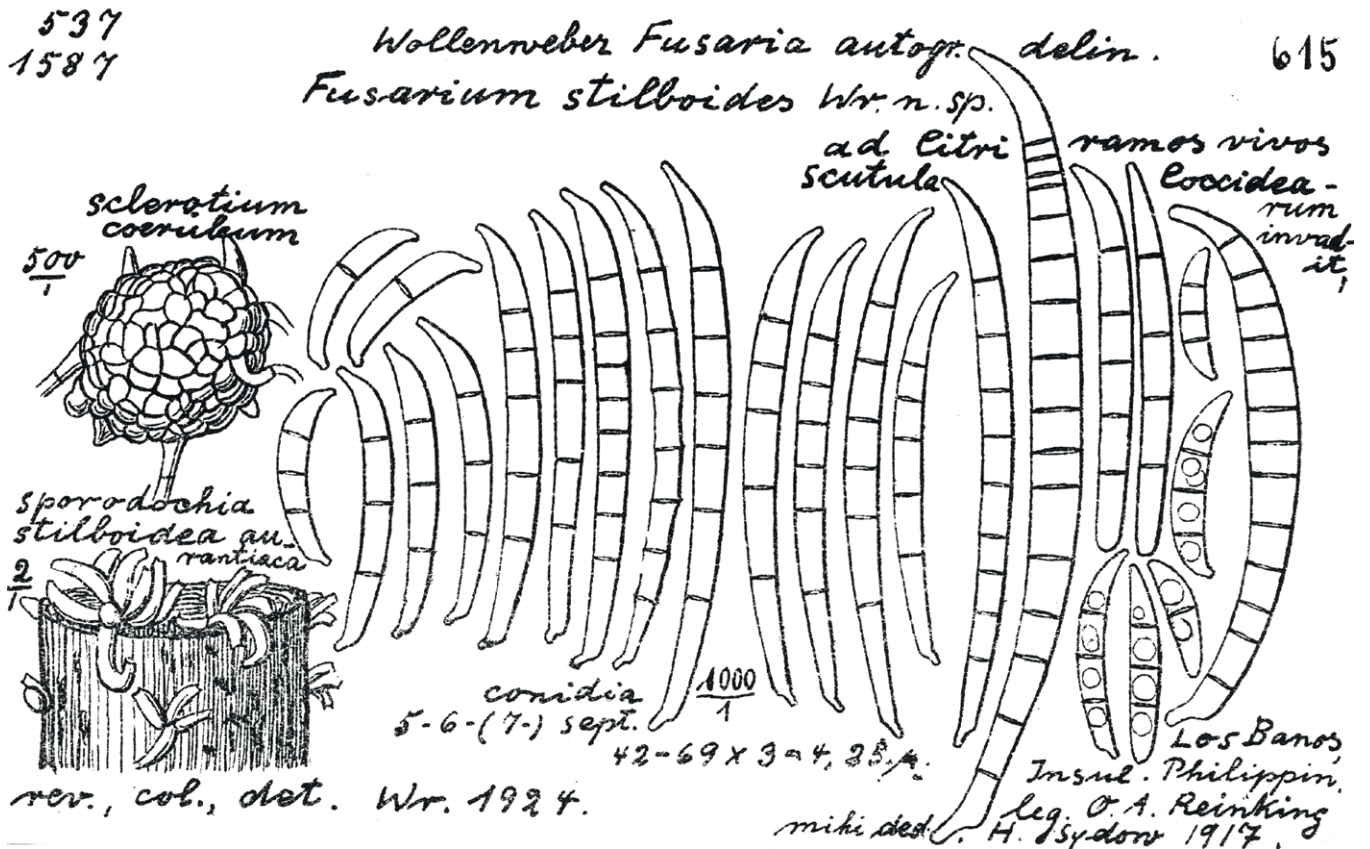 537
1587
Wollenweber Fusaria autogr. delin.
615
Fusarium stilboides Wr. n. sp.
ad Citri ramos vivos
scutula Coccidea-
rum
invad-
it,
sclerotium
coeruleum
500
1
sporodochia
stilboidea au-
rantiaca
2
1
conidia
5-6-(7-) sept.
1000
1
42-69 x 3-4,25 µ.
Los Banos,
Insul. Philippin.
leg. O. A. Reinking
mihi ded. H. Sydow 1917.
rev., col., det. Wr. 1924.